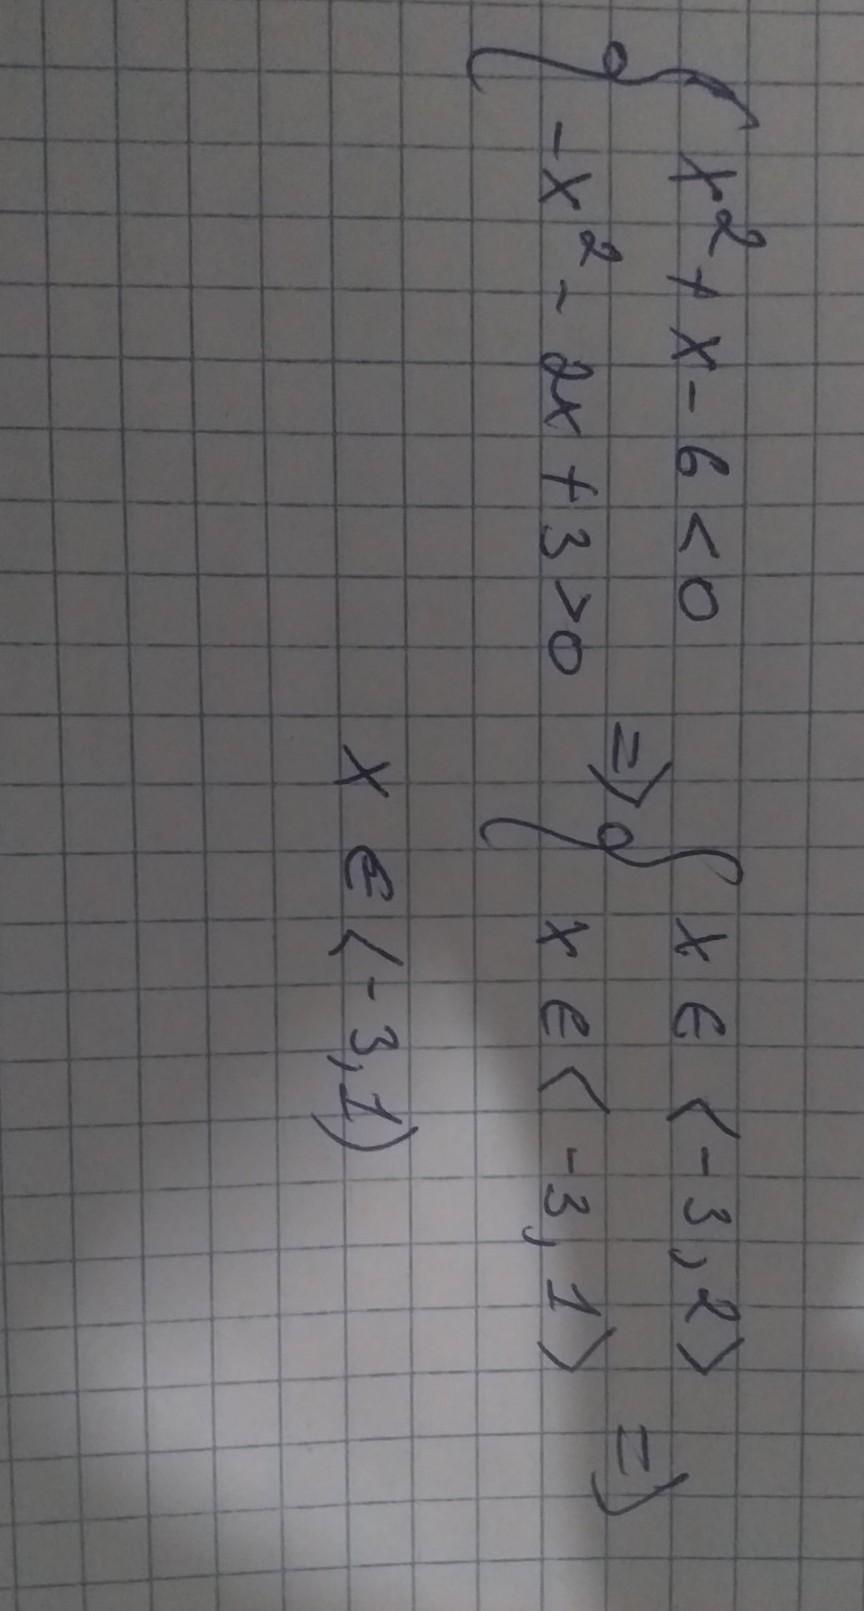 x² + x - 6 < 0
⇒ { x ∈ <-3, 2>
{ -x² - 2x + 3 > 0
x ∈ <-3, 1> ⇒
x ∈ <-3, 1)